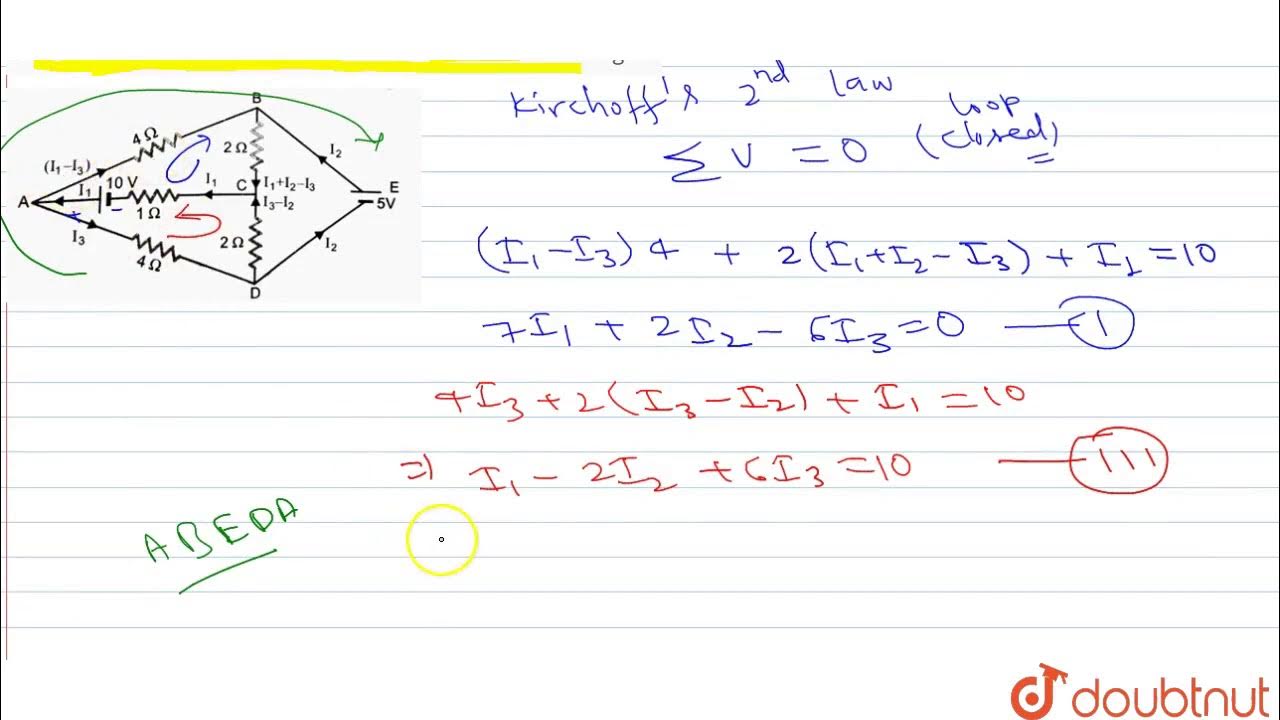 B
4 Ω
2 Ω
I₂
(I₁–I₃)
I₁
10 V
I₁
C
I₁+I₂–I₃
E
A
+
–
1 Ω
I₃–I₂
5V
I₃
2 Ω
I₂
4 Ω
D
Kirchoff's 2nd law
loop
(closed)
∑ V = 0
(I₁ – I₃) 4 + 2(I₁+I₂ – I₃) + I₁ = 10
7I₁ + 2I₂ – 6I₃ = 0 — I
4I₃ + 2(I₃ – I₂) + I₁ = 10
⇒ I₁ – 2I₂ + 6I₃ = 10 — III
ABEDA
doubtnut